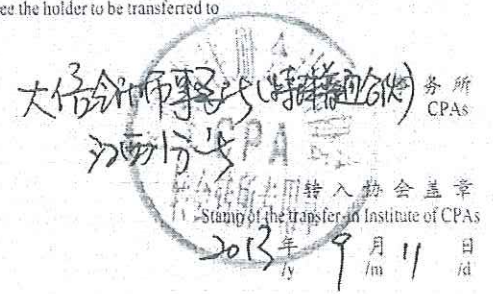 ee the holder to be transferred to
大信会计师事务所(特殊普通合伙) 务所
CPAs
分所
CPA
转入协会盖章
Stamp of the transfer-in Institute of CPAs
2013 年 9 月 11 日
/y /m /d